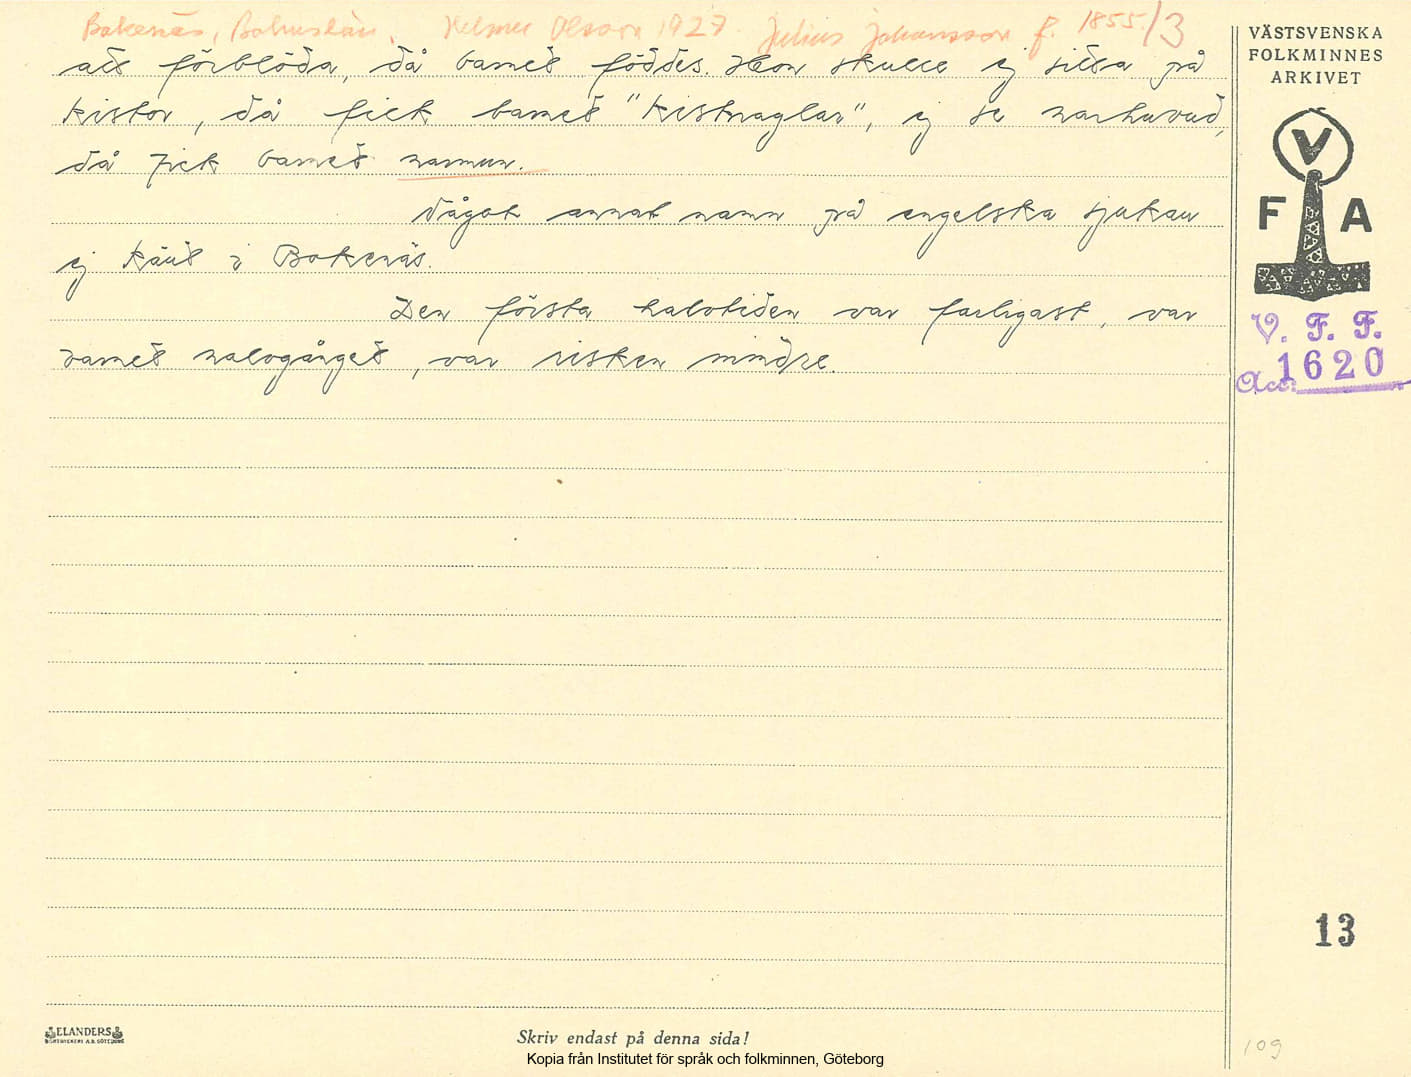 Bokenäs, Bohuslän. Helmer Olsson 1927. Julius Johansson f. 1855. /3
att förblöda, då barnet föddes. Hon skulle ej sitta på
kistor, då fick barnet "kistnaglar", ej se harhuvud,
då fick barnet harmun.
Något annat namn på engelska sjukan
ej känt i Bokenäs.
Den första halvtiden var farligast, var
barnet halvgånget, var risken mindre.
VÄSTSVENSKA
FOLKMINNES
ARKIVET
V
F A
V. F. F.
Acc. 1620
13
109
ELANDERS
BOKTRYCKERI A.B. GÖTEBORG
Skriv endast på denna sida!
Kopia från Institutet för språk och folkminnen, Göteborg